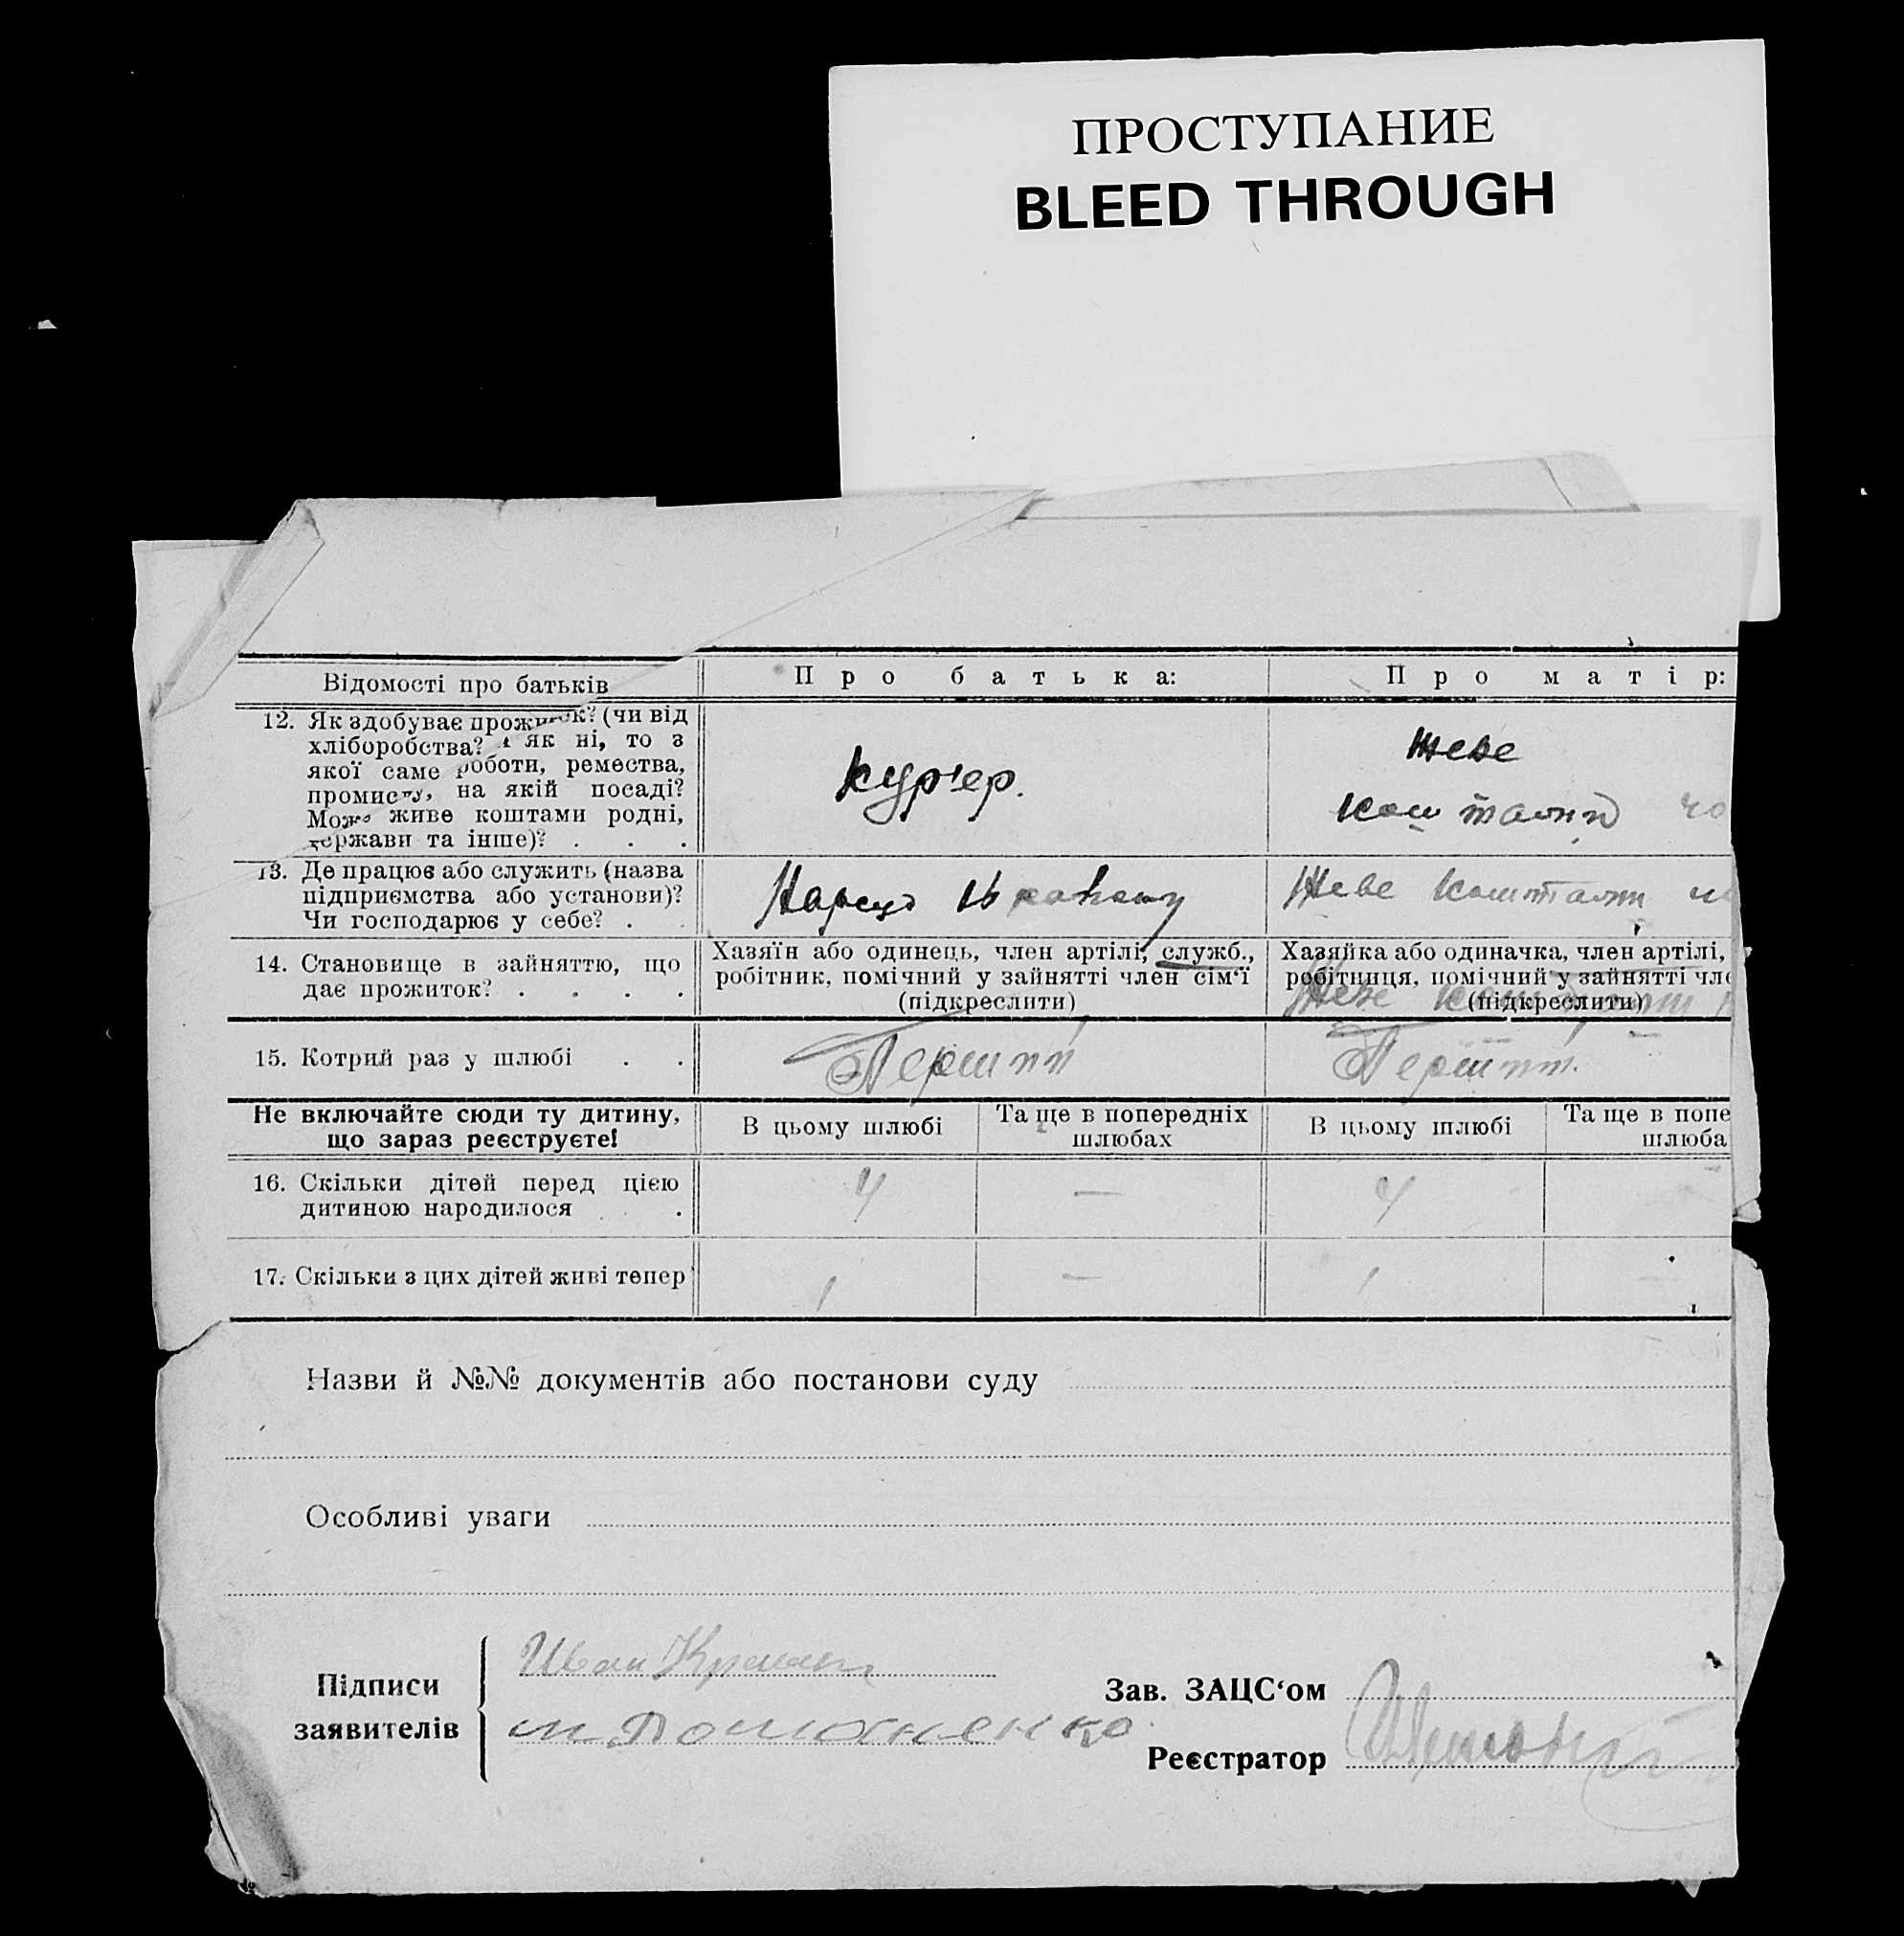 ПРОСТУПАНИЕ
BLEED THROUGH
Відомості про батьків
Про батька:
Про матір:
12. Як здобуває прожиток? (чи від
хліборобства? як ні, то з
якої саме роботи, ремества,
промислу, на якій посаді?
Може живе коштами родні,
держави та інше)? . . .
Кур'ер.
Живе
коштами чо
13. Де працює або служить (назва
підприємства або установи)?
Чи господарює у себе? .
Нарсуд
Живе коштами чо
14. Становище в зайняттю, що
дає прожиток? . . . .
Хазяїн або одинець, член артілі, служб.,
робітник, помічний у зайнятті член сім'ї
(підкреслити)
Хазяйка або одиначка, член артілі,
робітниця, помічний у зайнятті чле
(підкреслити)
Живе коштами
15. Котрий раз у шлюбі . .
Перший
Перший.
Не включайте сюди ту дитину,
що зараз реєструєте!
В цьому шлюбі
Та ще в попередніх
шлюбах
В цьому шлюбі
Та ще в попе
шлюба
16. Скільки дітей перед цією
дитиною народилося . .
4
—
4
17. Скільки з цих дітей живі тепер
1
—
1
Назви й №№ документів або постанови суду
Особливі уваги
Підписи
заявителів
Иван
Зав. ЗАЦС'ом
Реєстратор